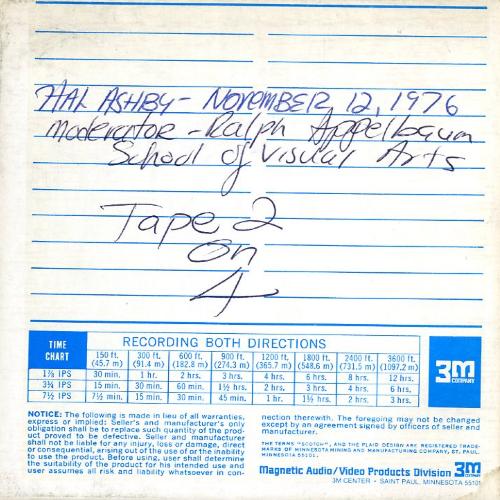 HAL ASHBY - NOVEMBER, 12, 1976
Moderator - Ralph Appelbaum
School of Visual Arts
Tape 2
on
4
TIME CHART RECORDING BOTH DIRECTIONS
150 ft. (45.7 m) 300 ft. (91.4 m) 600 ft. (182.8 m) 900 ft. (274.3 m) 1200 ft. (365.7 m) 1800 ft. (548.6 m) 2400 ft. (731.5 m) 3600 ft. (1097.2 m)
1⅞ IPS 30 min. 1 hr. 2 hrs. 3 hrs. 4 hrs. 6 hrs. 8 hrs. 12 hrs.
3¾ IPS 15 min. 30 min. 60 min. 1½ hrs. 2 hrs. 3 hrs. 4 hrs. 6 hrs.
7½ IPS 7½ min. 15 min. 30 min. 45 min. 1 hr. 1½ hrs. 2 hrs. 3 hrs.
3M
COMPANY
NOTICE: The following is made in lieu of all warranties,
express or implied: Seller's and manufacturer's only
obligation shall be to replace such quantity of the prod-
uct proved to be defective. Seller and manufacturer
shall not be liable for any injury, loss or damage, direct
or consequential, arising out of the use of or the inability
to use the product. Before using, user shall determine
the suitability of the product for his intended use and
user assumes all risk and liability whatsoever in con-
nection therewith. The foregoing may not be changed
except by an agreement signed by officers of seller and
manufacturer.
THE TERMS "SCOTCH", AND THE PLAID DESIGN ARE REGISTERED TRADE-
MARKS OF MINNESOTA MINING AND MANUFACTURING COMPANY, ST. PAUL,
MINNESOTA 55101.
Magnetic Audio/Video Products Division 3M COMPANY
3M CENTER • SAINT PAUL, MINNESOTA 55101